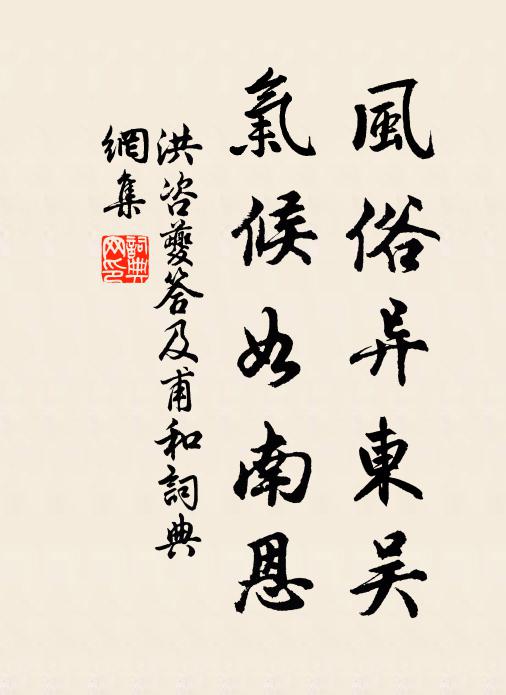 風俗异東吴
氣候如南恩
洪咨夔答及甫和詞典
網集
詞典
网印